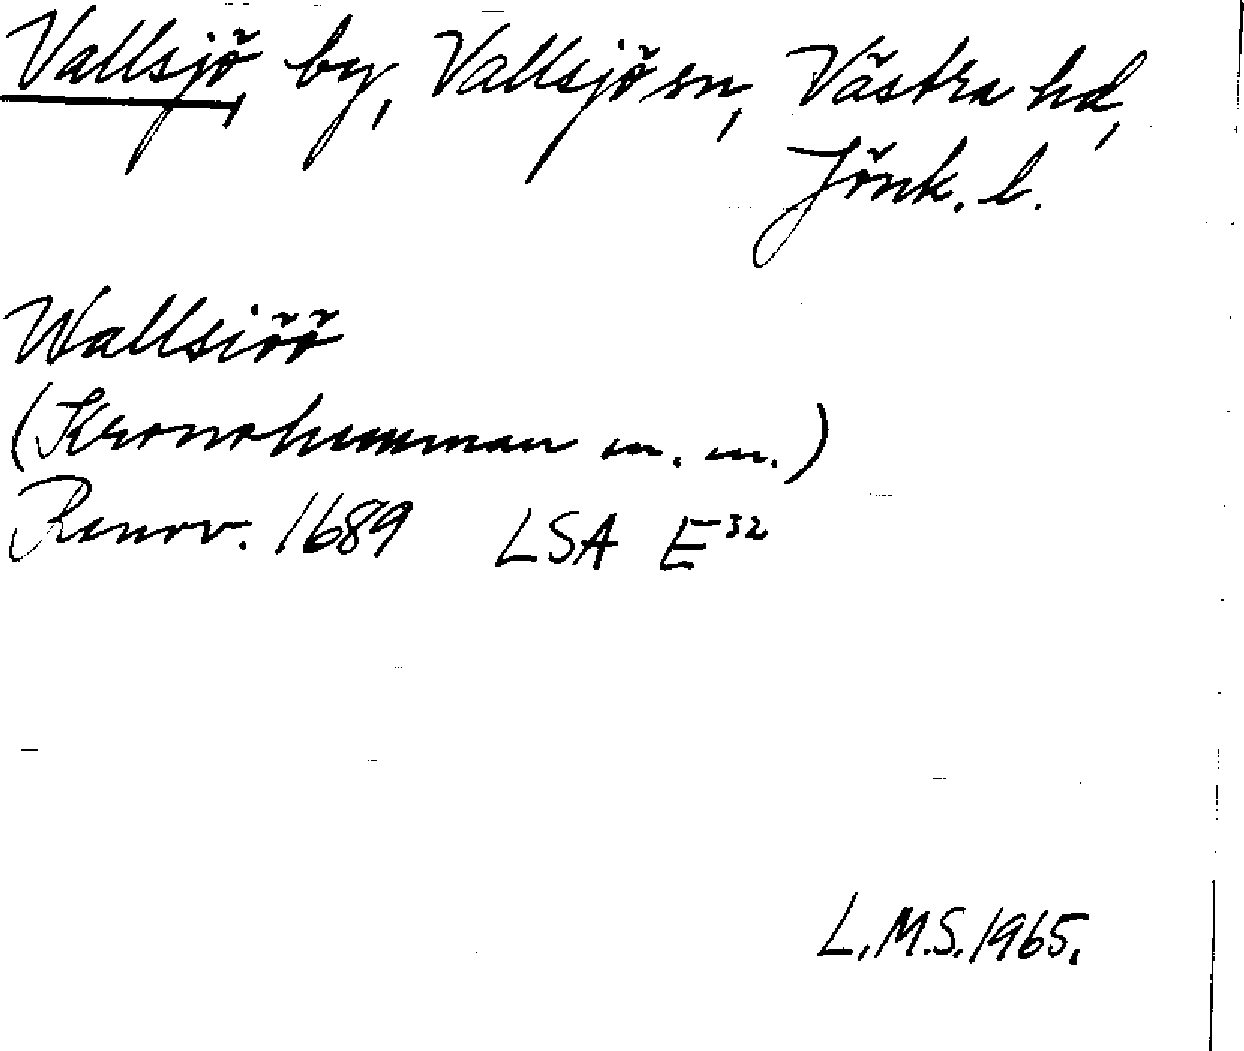 Vallsjö, by, Vallsjö sn, Västra hd,
Jönk. l.
Wallsiöö
(Kronohemman m. m.)
Renov. 1689 LSA E32
L.M.S. 1965.